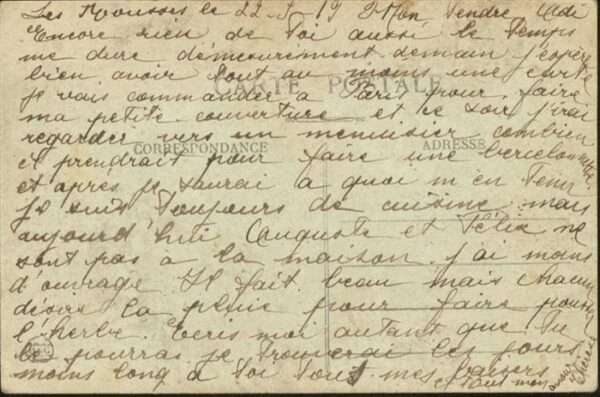 Les Rousses le 22-5-19 Mon Tendre Adi
Encore rien de Toi aussi le Temps
me dure démesurément demain j'espère
bien avoir tout au moins une carte
CARTE POSTALE
je vais commander à Paris pour faire
ma petite couverture et ce soir j'irai
regarder vers un menuisier combien
CORRESPONDANCE ADRESSE
il prendrait pour faire une bercelonnette
et après je saurai à quoi m'en Tenir
je suis Toujours de cuisine mais
aujourd'hui Auguste et Félix ne
sont pas à la maison. j'ai moins
d'ouvrage Il fait beau mais chacun
désire la pluie pour faire pousser
l'herbe. Ecris moi autant que Tu
le pourras je Trouverai les jours
moins long à Toi Tous mes baisers
et Tout mon amour